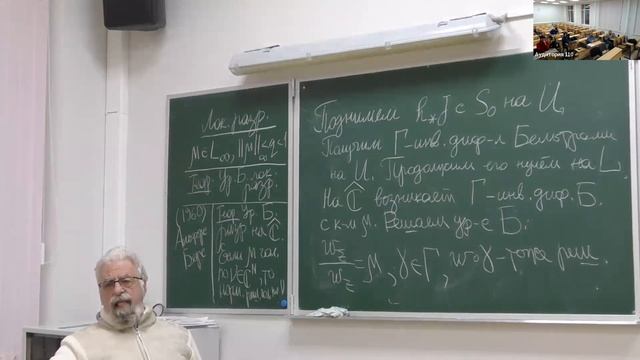 Лок. разр.
μ∈L∞, ‖μ‖∞≤q<1
Теор. Ур. Б. лок.
разр.
(1960)
Альфорс
Берс
Теор. Ур. Б.
разр. на Ĉ.
Если μ гл.
Поднимем h*J с S₀ на U,
Получим Γ-инв. диф-л Бельтрами
на U. Продолжим его нулём на L.
На Ĉ возникает Γ-инв. диф. Б.
с к-м μ. Решаем ур-е Б.
w_z̄ / w_z = μ, γ∈Γ, w∘γ - тоже реш.
Аудитория 110